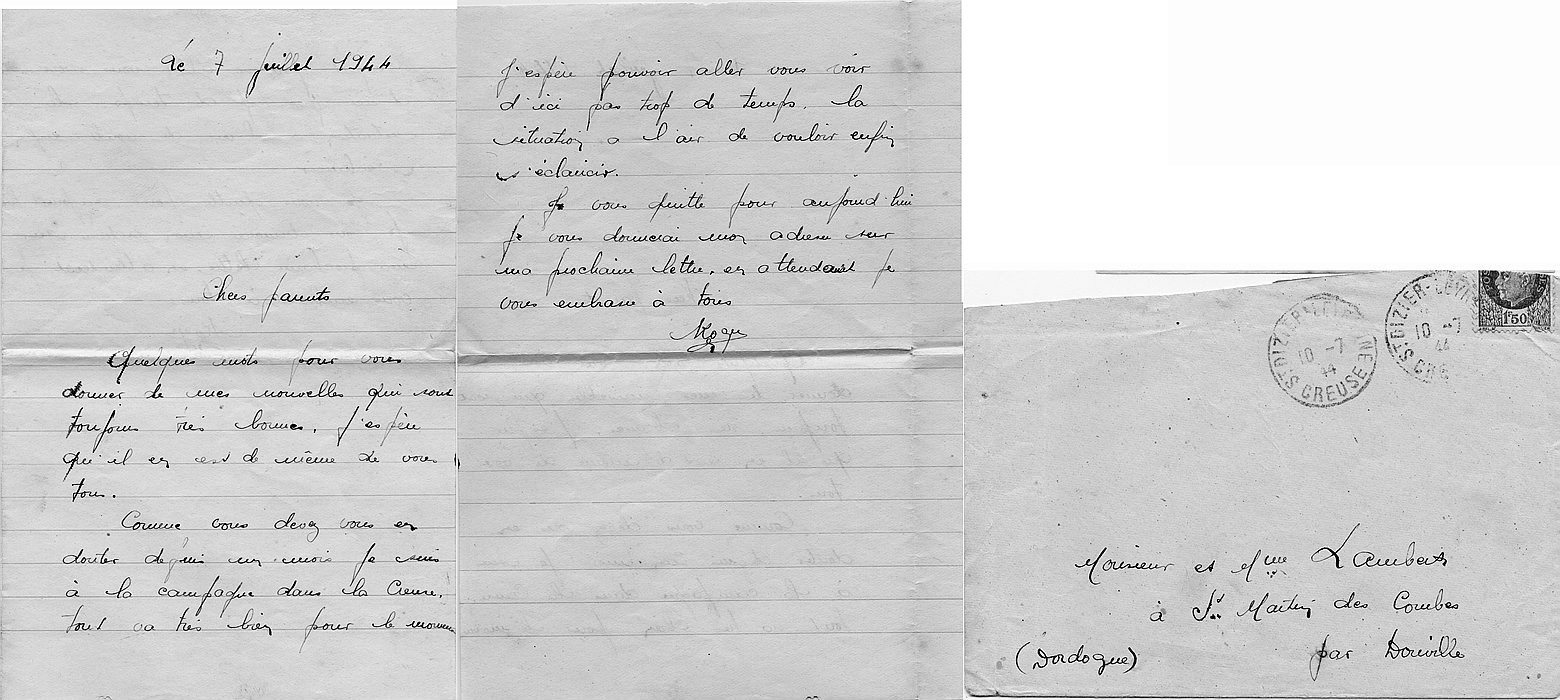 Le 7 Juillet 1944
Chers parents
Quelques mots pour vous
donner de mes nouvelles qui sont
toujours très bonnes. J'espère
qu'il en est de même de vous
tous.
Comme vous devez vous en
douter depuis un mois je suis
à la campagne dans la Creuse.
tout va très bien pour le moment
J'espère pouvoir aller vous voir
d'ici pas trop de temps. La
situation a l'air de vouloir enfin
s'éclaircir.
Je vous quitte pour aujourd'hui
Je vous donnerai mon adresse sur
ma prochaine lettre. en attendant je
vous embrasse à tous
ST DIZIER-LEYRENNE
10 -7
44
CREUSE
ST DIZIER-LEYR
10 -7
44
CRE
1F50
Monsieur et Mme Lambert
à St Martin des Combes
par Douville
(Dordogne)